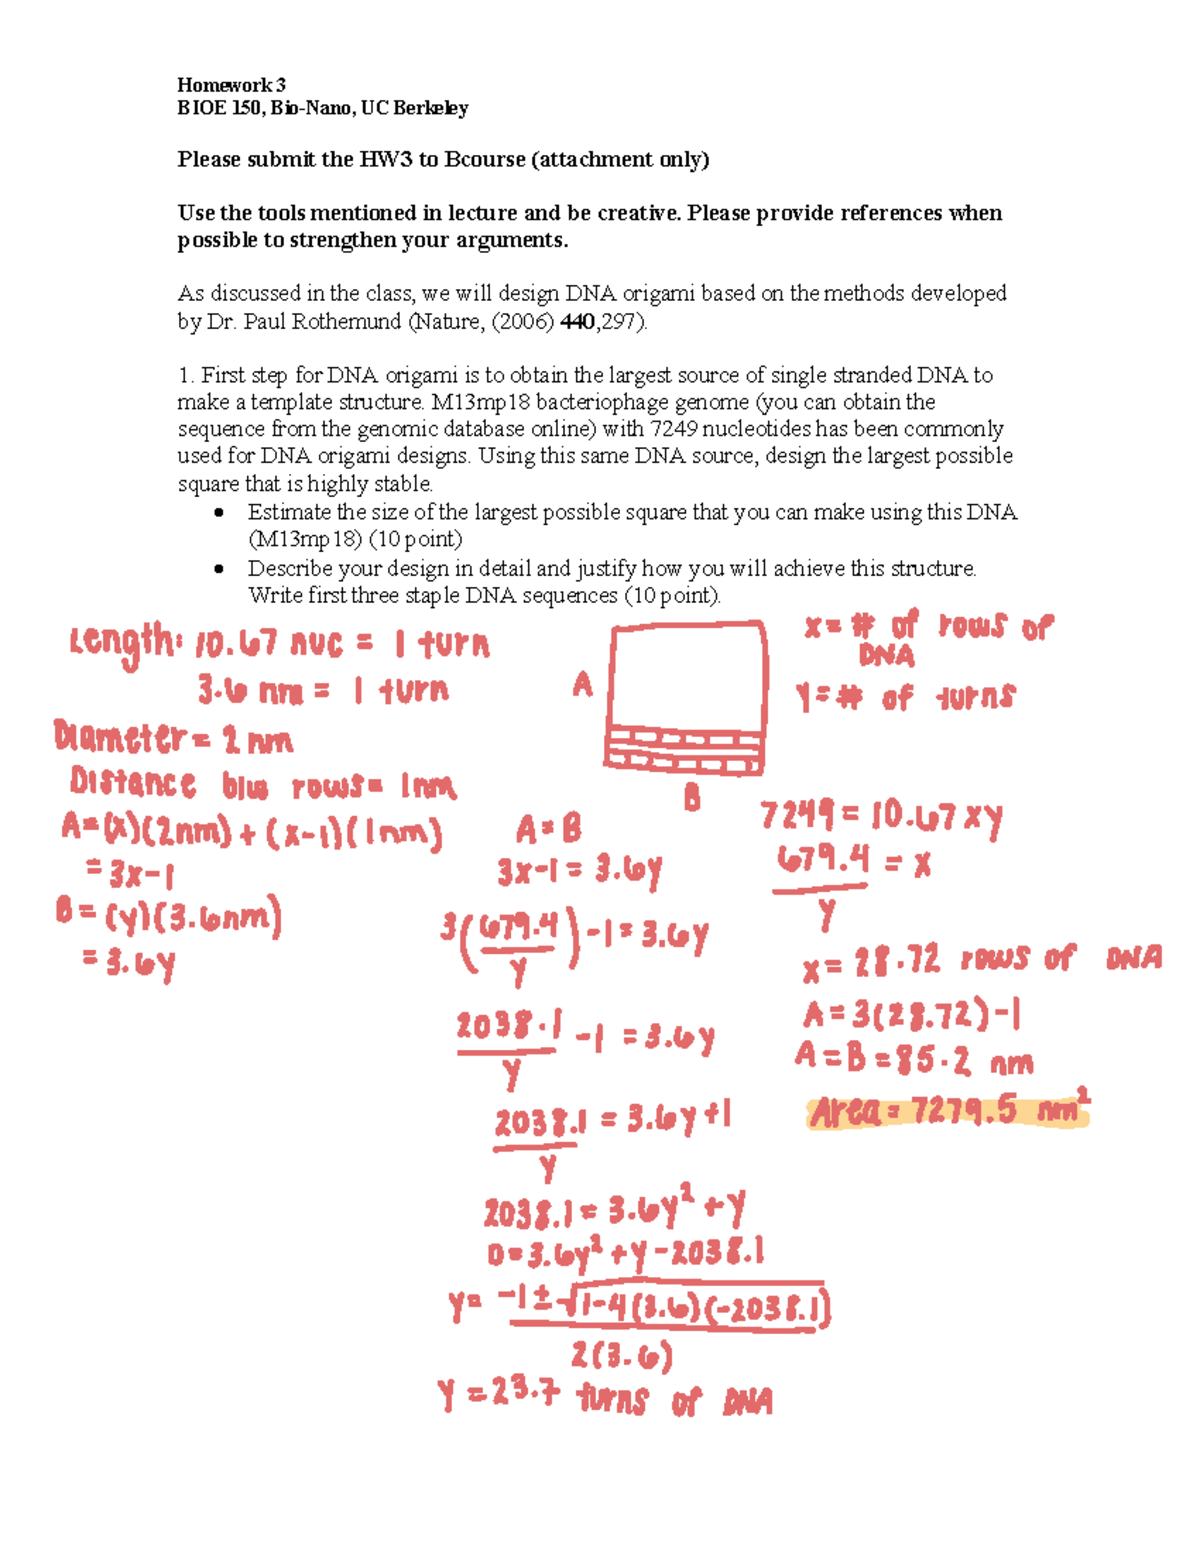 Homework 3
BIOE 150, Bio-Nano, UC Berkeley
Please submit the HW3 to Bcourse (attachment only)
Use the tools mentioned in lecture and be creative. Please provide references when
possible to strengthen your arguments.
As discussed in the class, we will design DNA origami based on the methods developed
by Dr. Paul Rothemund (Nature, (2006) 440,297).
1. First step for DNA origami is to obtain the largest source of single stranded DNA to
make a template structure. M13mp18 bacteriophage genome (you can obtain the
sequence from the genomic database online) with 7249 nucleotides has been commonly
used for DNA origami designs. Using this same DNA source, design the largest possible
square that is highly stable.
• Estimate the size of the largest possible square that you can make using this DNA
(M13mp18) (10 point)
• Describe your design in detail and justify how you will achieve this structure.
Write first three staple DNA sequences (10 point).
Length: 10.67 nuc = 1 turn
3.6 nm = 1 turn
Diameter = 2 nm
Distance b/w rows = 1nm
A = (x)(2nm) + (x-1)(1nm)
= 3x-1
B = (y)(3.6nm)
= 3.6y
A
B
x = # of rows of
DNA
y = # of turns
A = B
3x-1 = 3.6y
3(679.4/y) -1 = 3.6y
2038.1/y -1 = 3.6y
2038.1/y = 3.6y+1
2038.1 = 3.6y² + y
0 = 3.6y² + y - 2038.1
y = -1 ± √1-4(3.6)(-2038.1)
2(3.6)
y = 23.7 turns of DNA
7249 = 10.67xy
679.4/y = x
x = 28.72 rows of DNA
A = 3(28.72)-1
A = B = 85.2 nm
Area = 7279.5 nm²